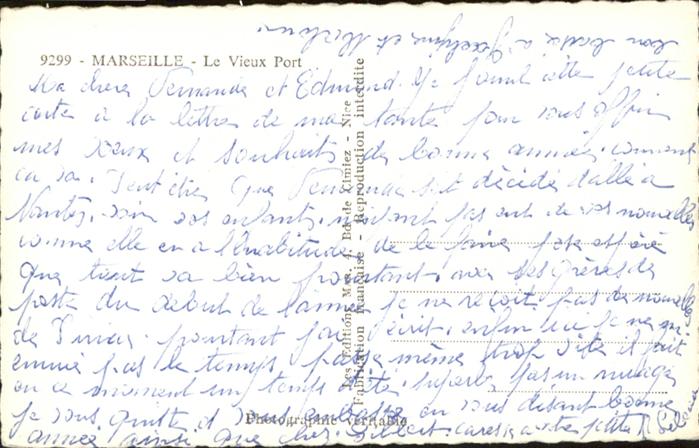 9299 - MARSEILLE - Le Vieux Port
Ma chere Fernande et Edmond. Je joint cette petite
carte a la lettre de ma tante pour vous offrir
mes vœux et souhaits de bonne année, comment
ca va Peut etre que Fernande s'est décidé d'allé a
Nantes. voir vos enfants, n'ayant pas eut de vos nouvelles
comme elle en a l'habitude de le faire j'ose espéré
que tout va bien pourtant. avec ses grèves de
poste du début de l'année je ne recoit pas de nouvelles
de pourtant j'ai écrit. enfin ici je ne m'
ennuie pas le temps passe même trop vite il fait
en ce moment un temps d'été. superbe, pas un nuage
je vous quitte et vous embrasse en vous disant bonne
année ainsi que chez Gilbert caresse a la petite
mon a Jocelyne et
Les Editions Mar, 4, Bd de Cimiez - Nice
Fabrication Française - Reproduction interdite
Photographie véritable